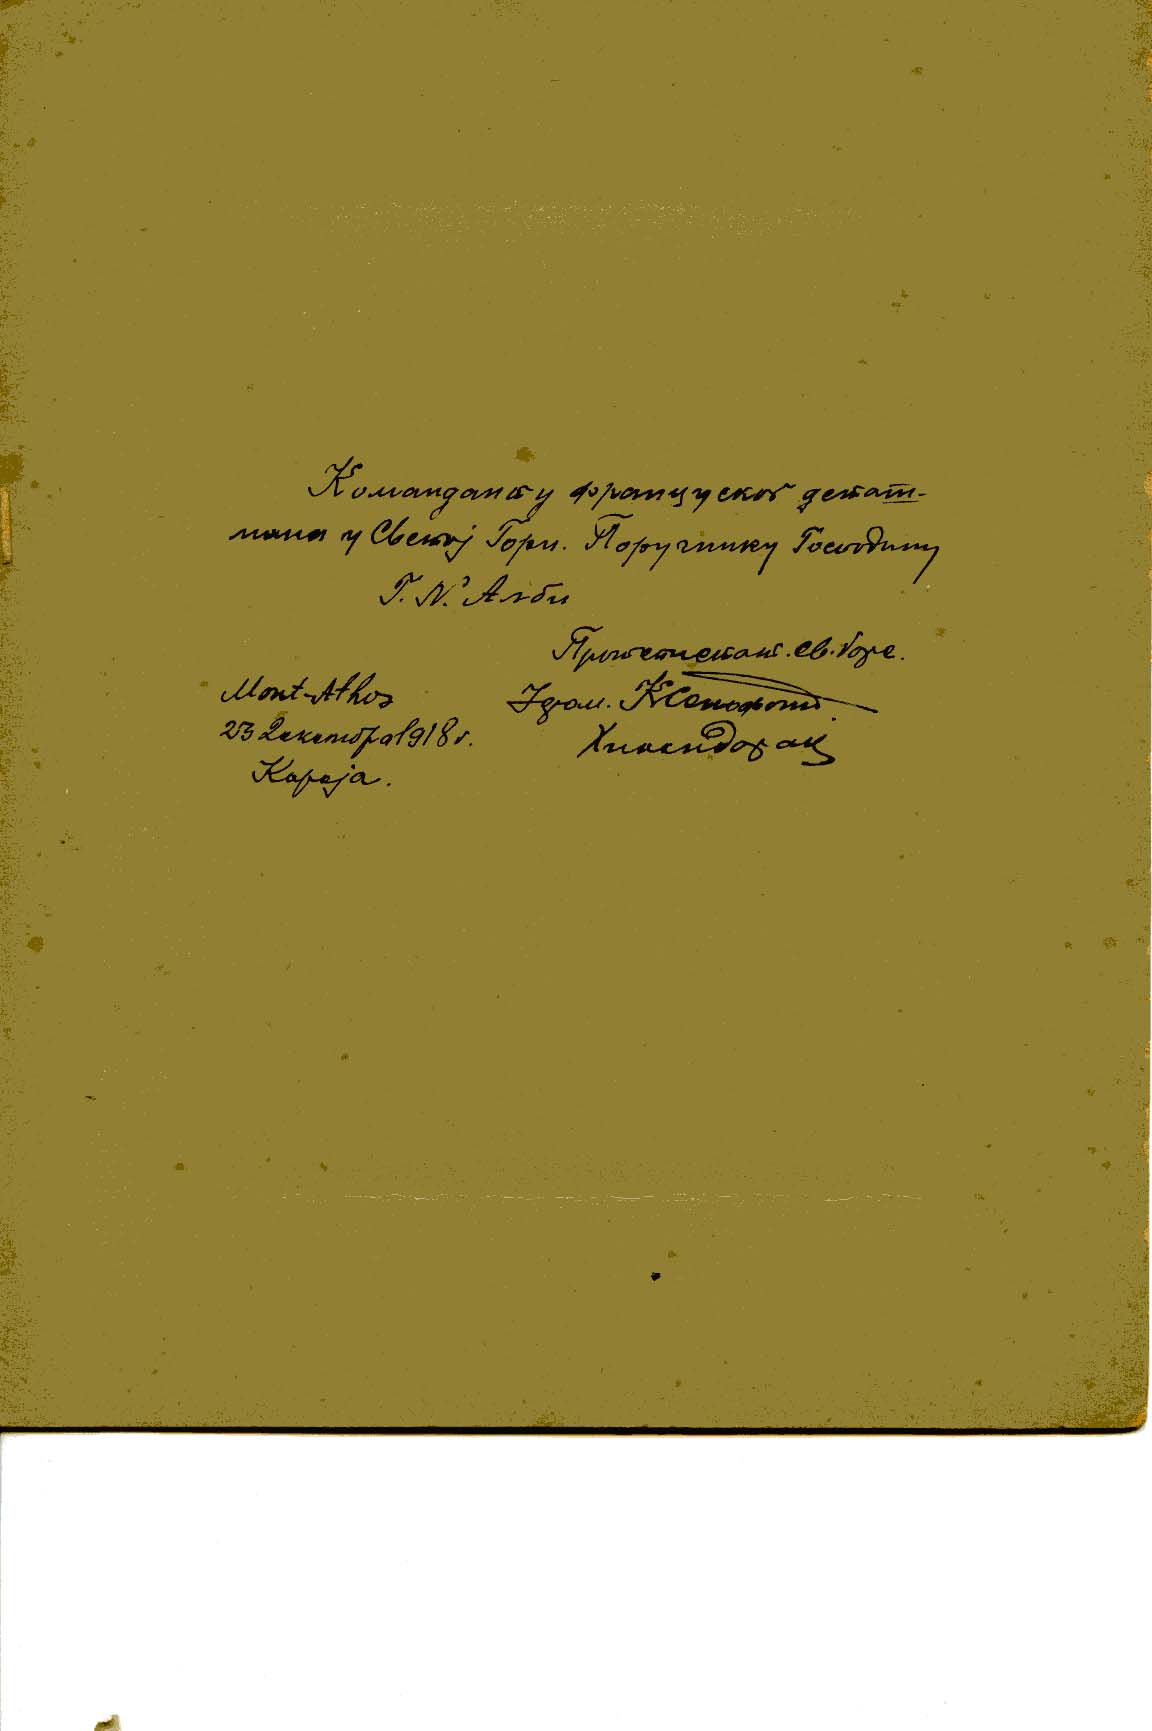 Команданту француског деташ-
мана у Светој Гори. Поручнику Господину
Г. N. Алби
Протепистат. Св. Горе.
Mont-Athos
23 Декембра 1918 г.
Кареја.
Јером. Ксенофонт
Хиландарац